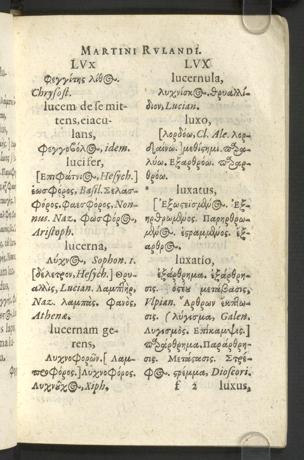 MARTINI RVLANDI.
LVX
φεγγίτης λίθος.
Chrysost.
lucem de se mit-
tens, eiacu-
lans,
Φεγγοβόλος, idem.
lucifer,
[Ἐπιφάτνιος, Hesych.]
ἑωσφόρος, Basil. Σελασ-
φόρος. Φαεσφόρος, Non-
nus. Naz. Φωσφόρος,
Aristoph.
lucerna,
Λύχνος, Sophon. 1.
[δίελετρον, Hesych.] Θρυ-
αλλὶς, Lucian. Λαμπτὴρ,
Naz. λαμπάς. Φανὸς,
Athenæ.
lucernam ge-
rens,
Λυχνοφορῶν. [Λαμ-
προφόρος.] Λυχνοφόρος.
Λυχνοῦχος, Xiph.
LVX
lucernula,
λυχνίσκος. Θρυαλλί-
διον, Lucian.
luxo,
[λορδόω, Cl. Ale. λορ-
δαίνω.] μεθίσημι.
λύω. Ἐξαρθρόω.
θρόω.
*
luxatus,
[Ἐξωσεισμένος. Ἐξ-
ηρθρωμένος. Παρηρθρω-
μένος. ἐστραμμένος. ἔξ-
αρθρος.
luxatio,
ἐξάρθρημα. ἐξάρθρη-
σις. ὀστέου μετάβασις,
Vlpian. Ἄρθρων ἔκπτω-
σις. (λύγισμα, Galen.
Λυγισμὸς. Ἐπίκαμψις.]
παράρθρημα. Παράρθρη-
σις. Μετάστασις. Στρέ-
φος, στρέμμα, Dioscori.
f 2 luxus,